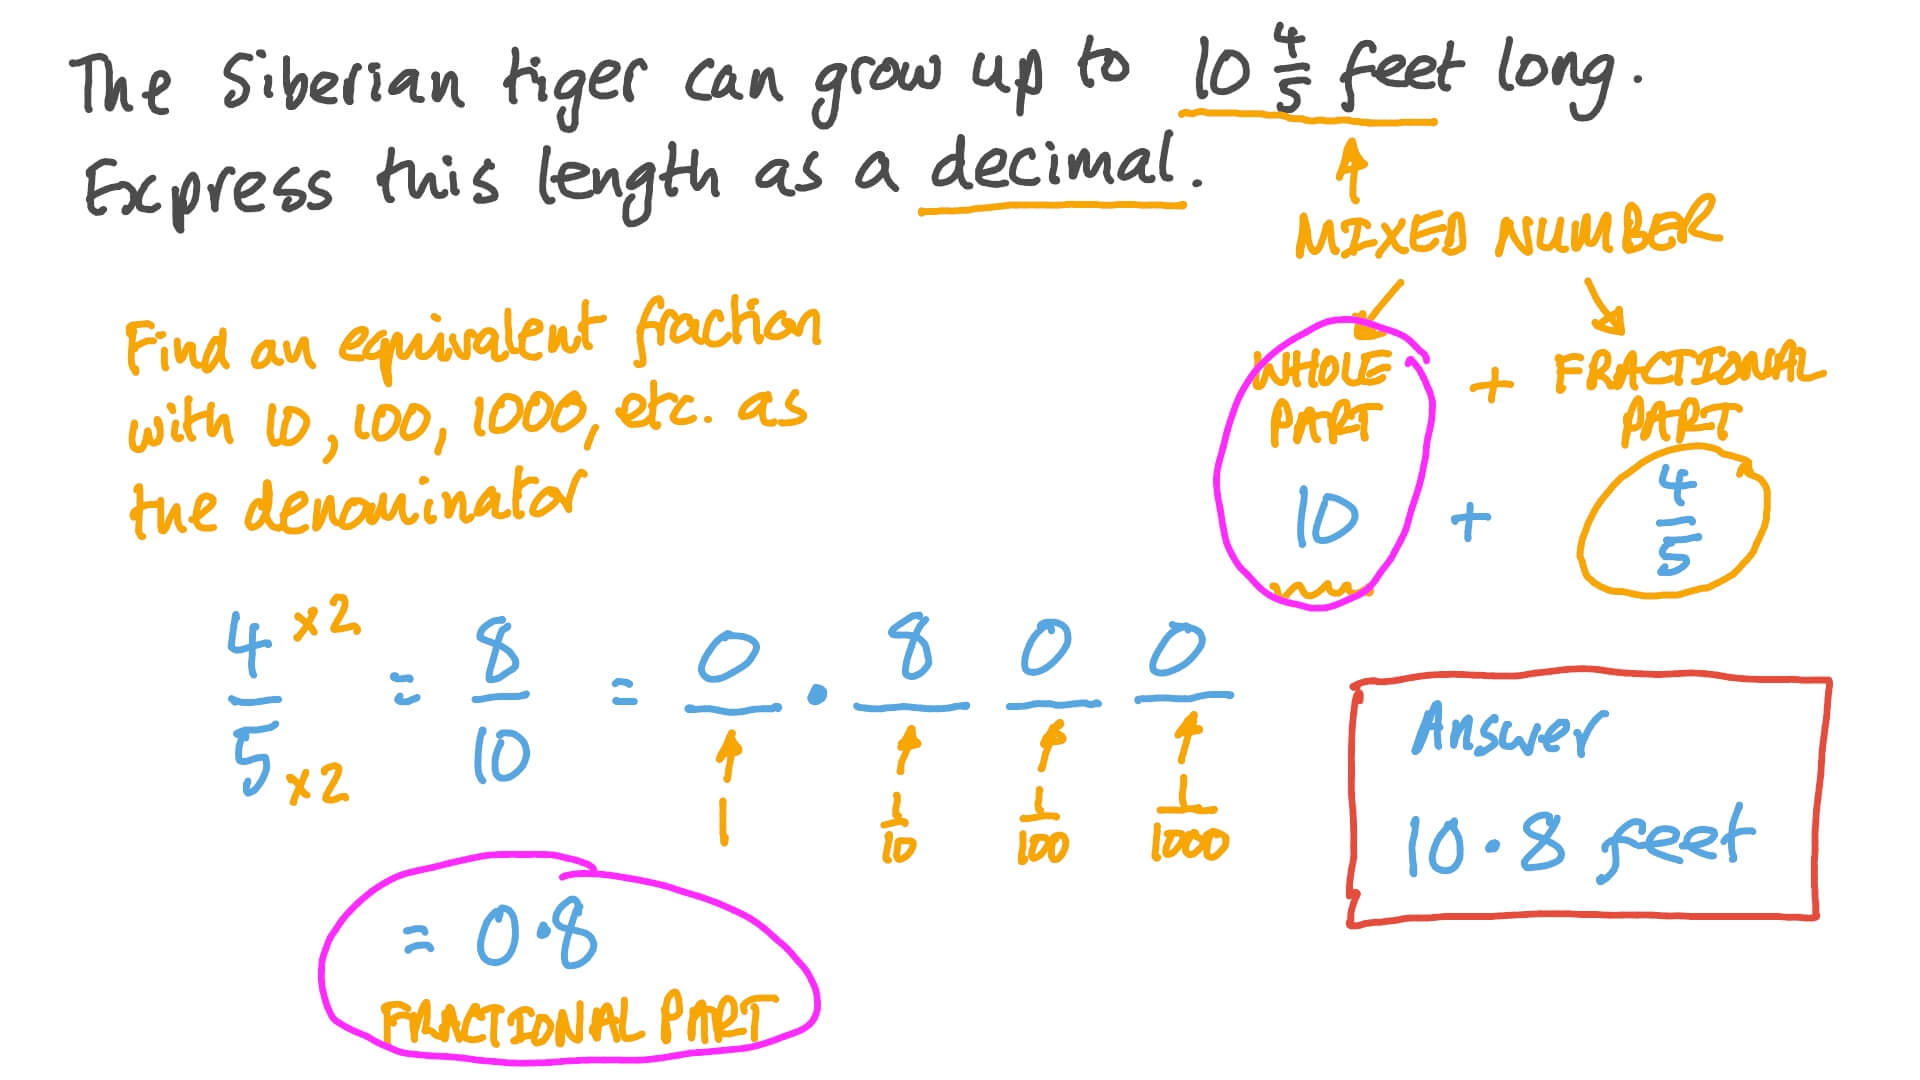 The Siberian tiger can grow up to 10 4/5 feet long.
Express this length as a decimal.
MIXED NUMBER
WHOLE PART + FRACTIONAL PART
10 + 4/5
Find an equivalent fraction
with 10, 100, 1000, etc. as
the denominator
4 ×2 / 5 ×2 = 8/10 = 0 . 8 0 0
1 1/10 1/100 1/1000
= 0.8
FRACTIONAL PART
Answer
10.8 feet